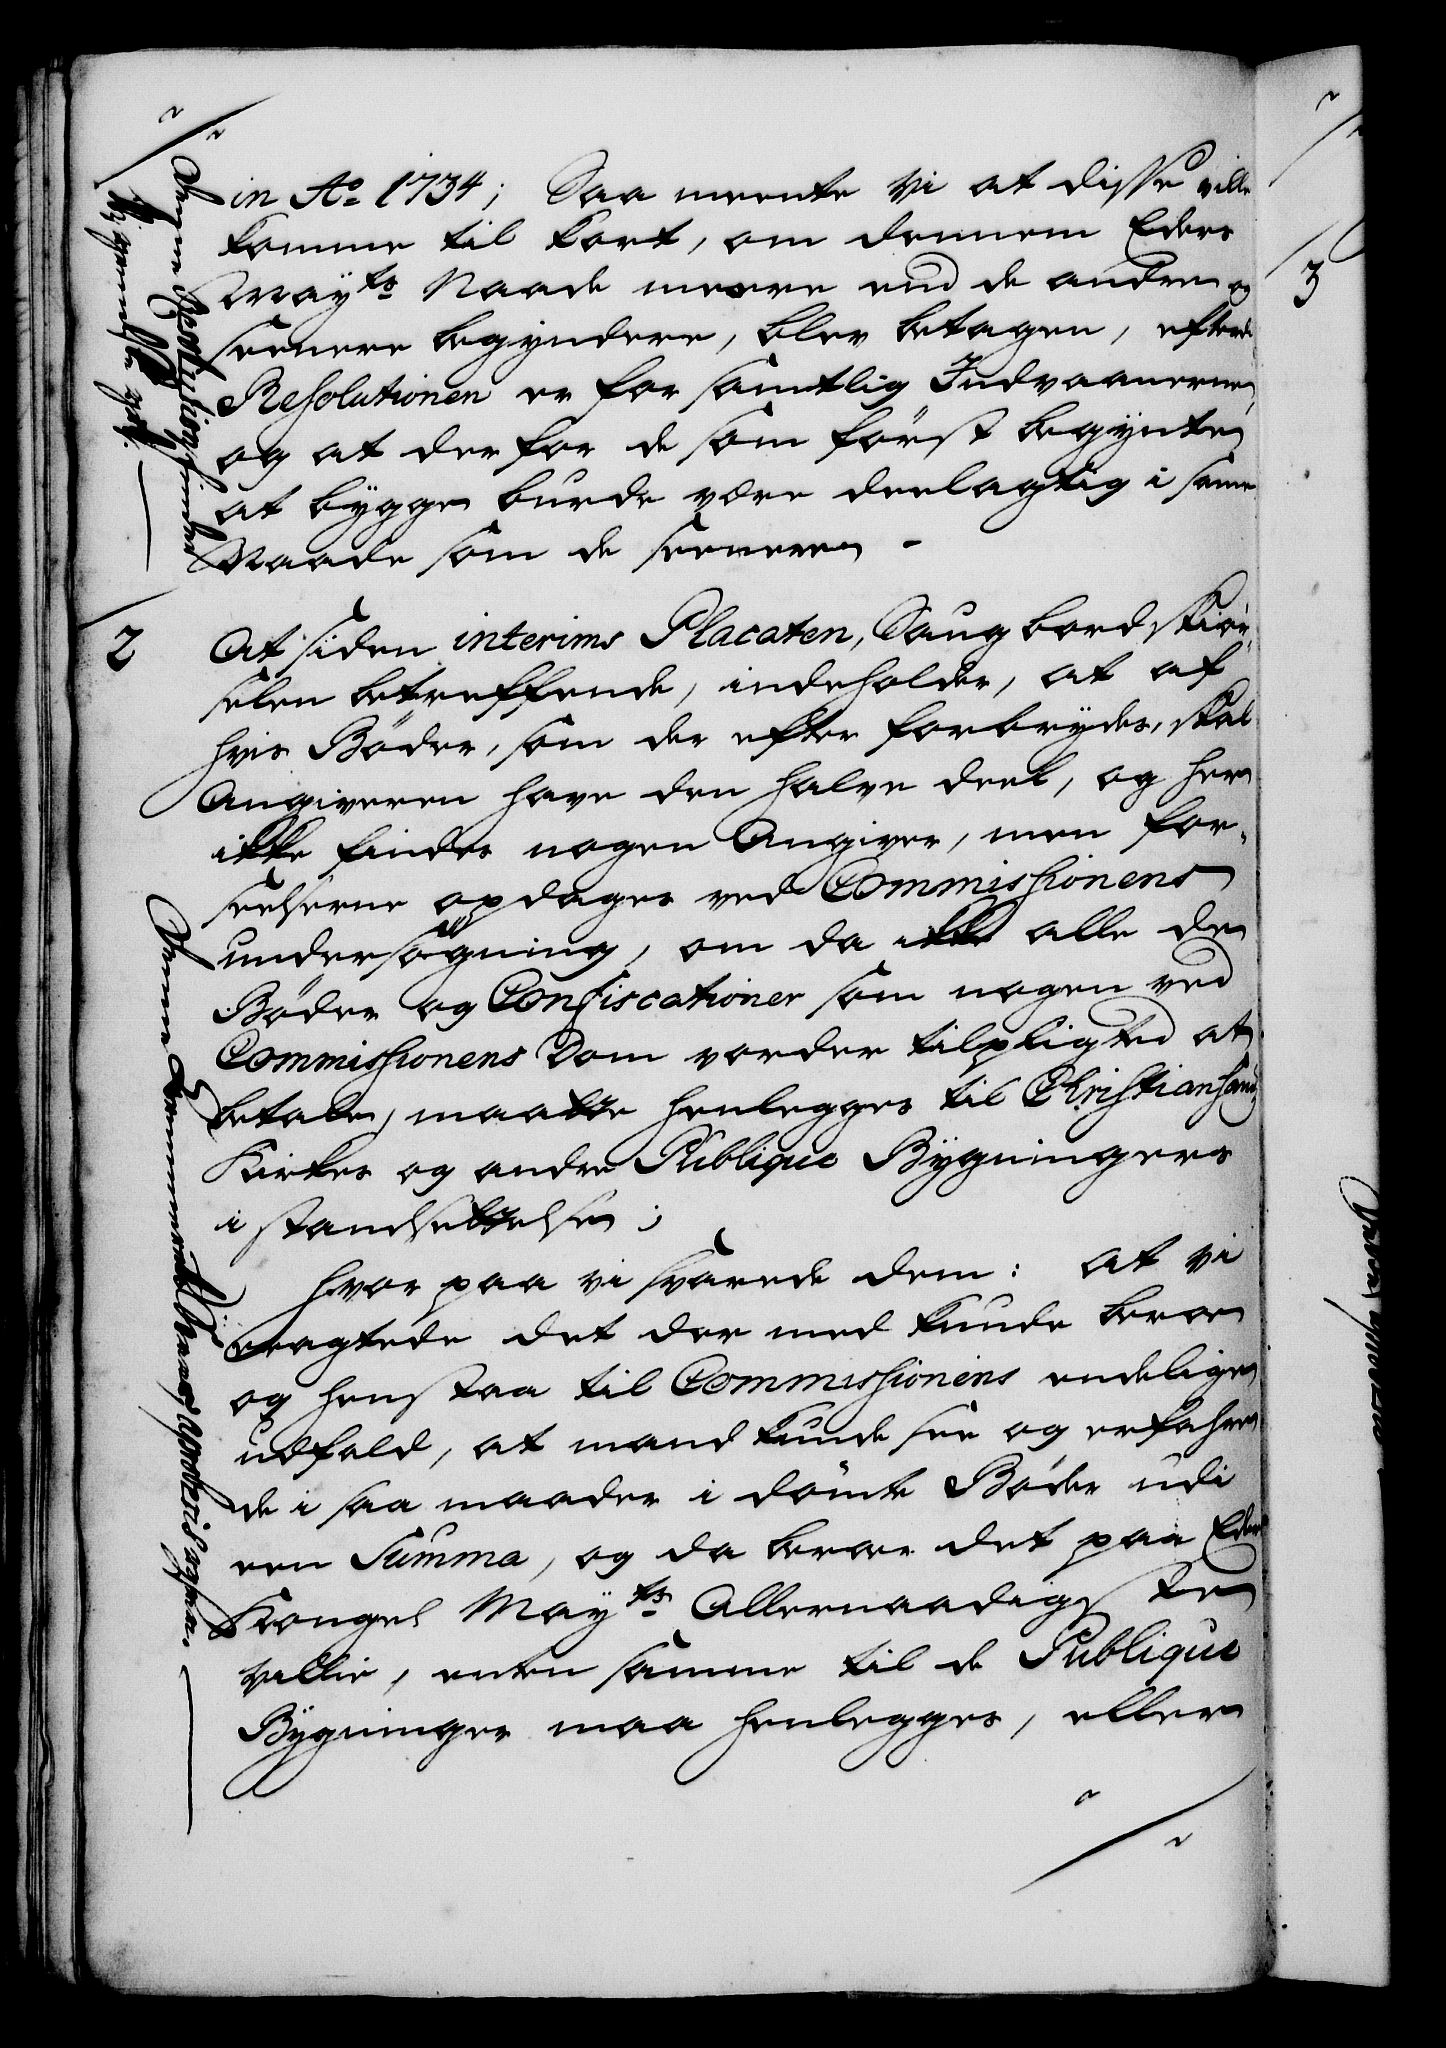 in Ao 1734; Saa meente Vi at disse ville
komme til kort, om dennem Eders
Mayts Naade meere end de andre og
seenere begyndere, blev betagen, efterdi
Resolutionen er for samtlig Indvaanerne,
og at derfor de som først begynte
at bygge burde være deelagtig i samme
Naade som de seenere
2
At siden interims Placaten, Saugbordskiør„
selen betreffende, indeholder, at af
hvis Bøder, som der efter forbrydes, skal
Angiveren have den halve deel, og her
ikke findes nogen Angiver, men for„
seelserne opdages ved Commissionens
undersøgning, om da ikke alle de
Bøder og Confiscationer som nogen ved
Commissionens Dom vorder tilpligted at
betale, maatte henlegges til Christiansands
Kirkes og andre Publique Bygningers
i standsettelse;
Hvor paa vi svarede dem: At vi
eragtede det der med kunde beroe
og henstaa til Commissionens endelige
udfald, at mand kunde see og erfahre
de i saa maader i dømte Bøder udi
een Summa, og da beroer det paa Eders
Kongel Mayts Allernaadigste
Villie, enten samme til de Publique
Bygninger maa henlegges, eller
3